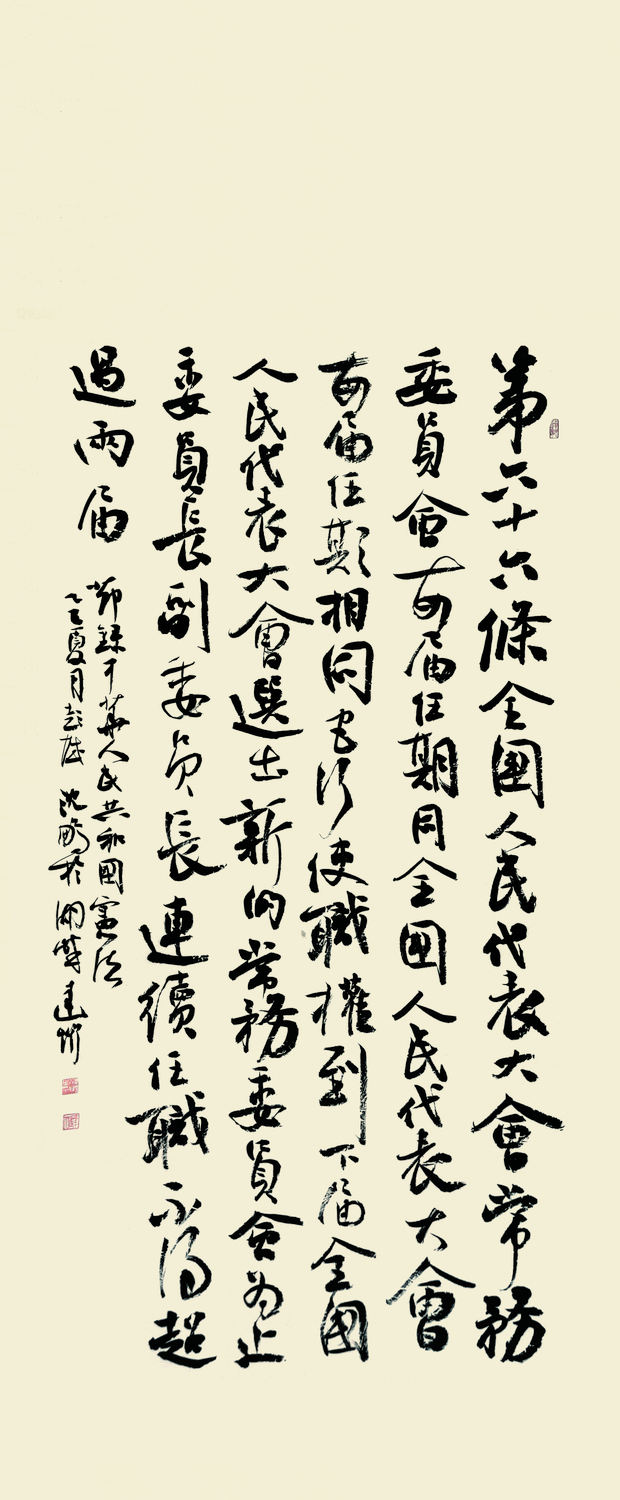 第六十六條全國人民代表大會常務
委員會每届任期同全國人民代表大會
每届任期相同它行使職權到下届全國
人民代表大會選出新的常務委員會為止
委員長副委員長連續任職不得超
過兩届
節録中華人民共和國憲法
夏月彭城沈於